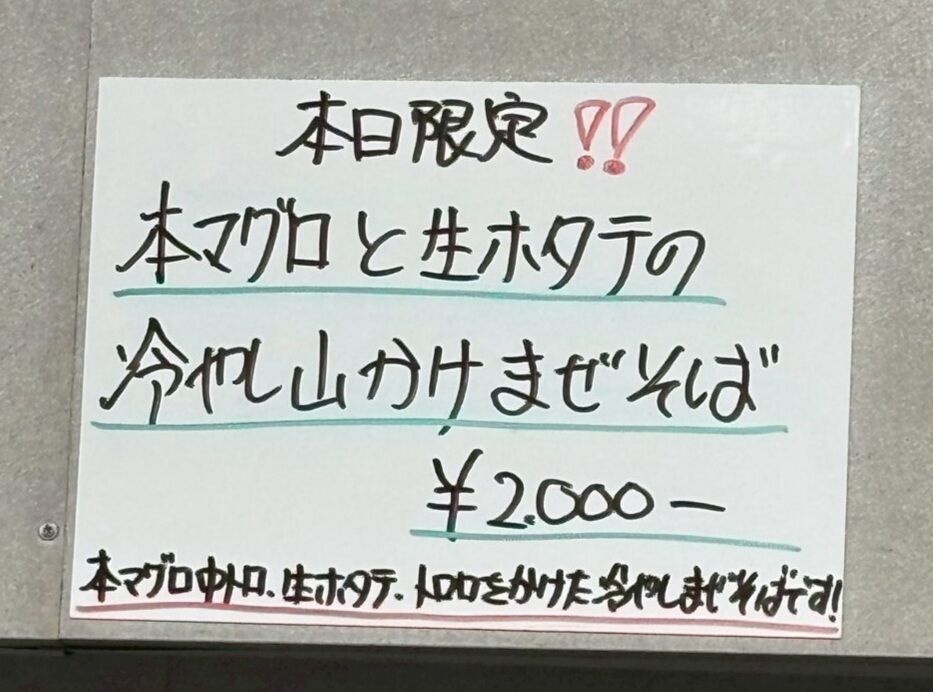 本日限定!!
本マグロと生ホタテの
冷やし山かけまぜそば
¥2.000ー
本マグロ中トロ、生ホタテ、トロロをかけた冷やしまぜそばです!